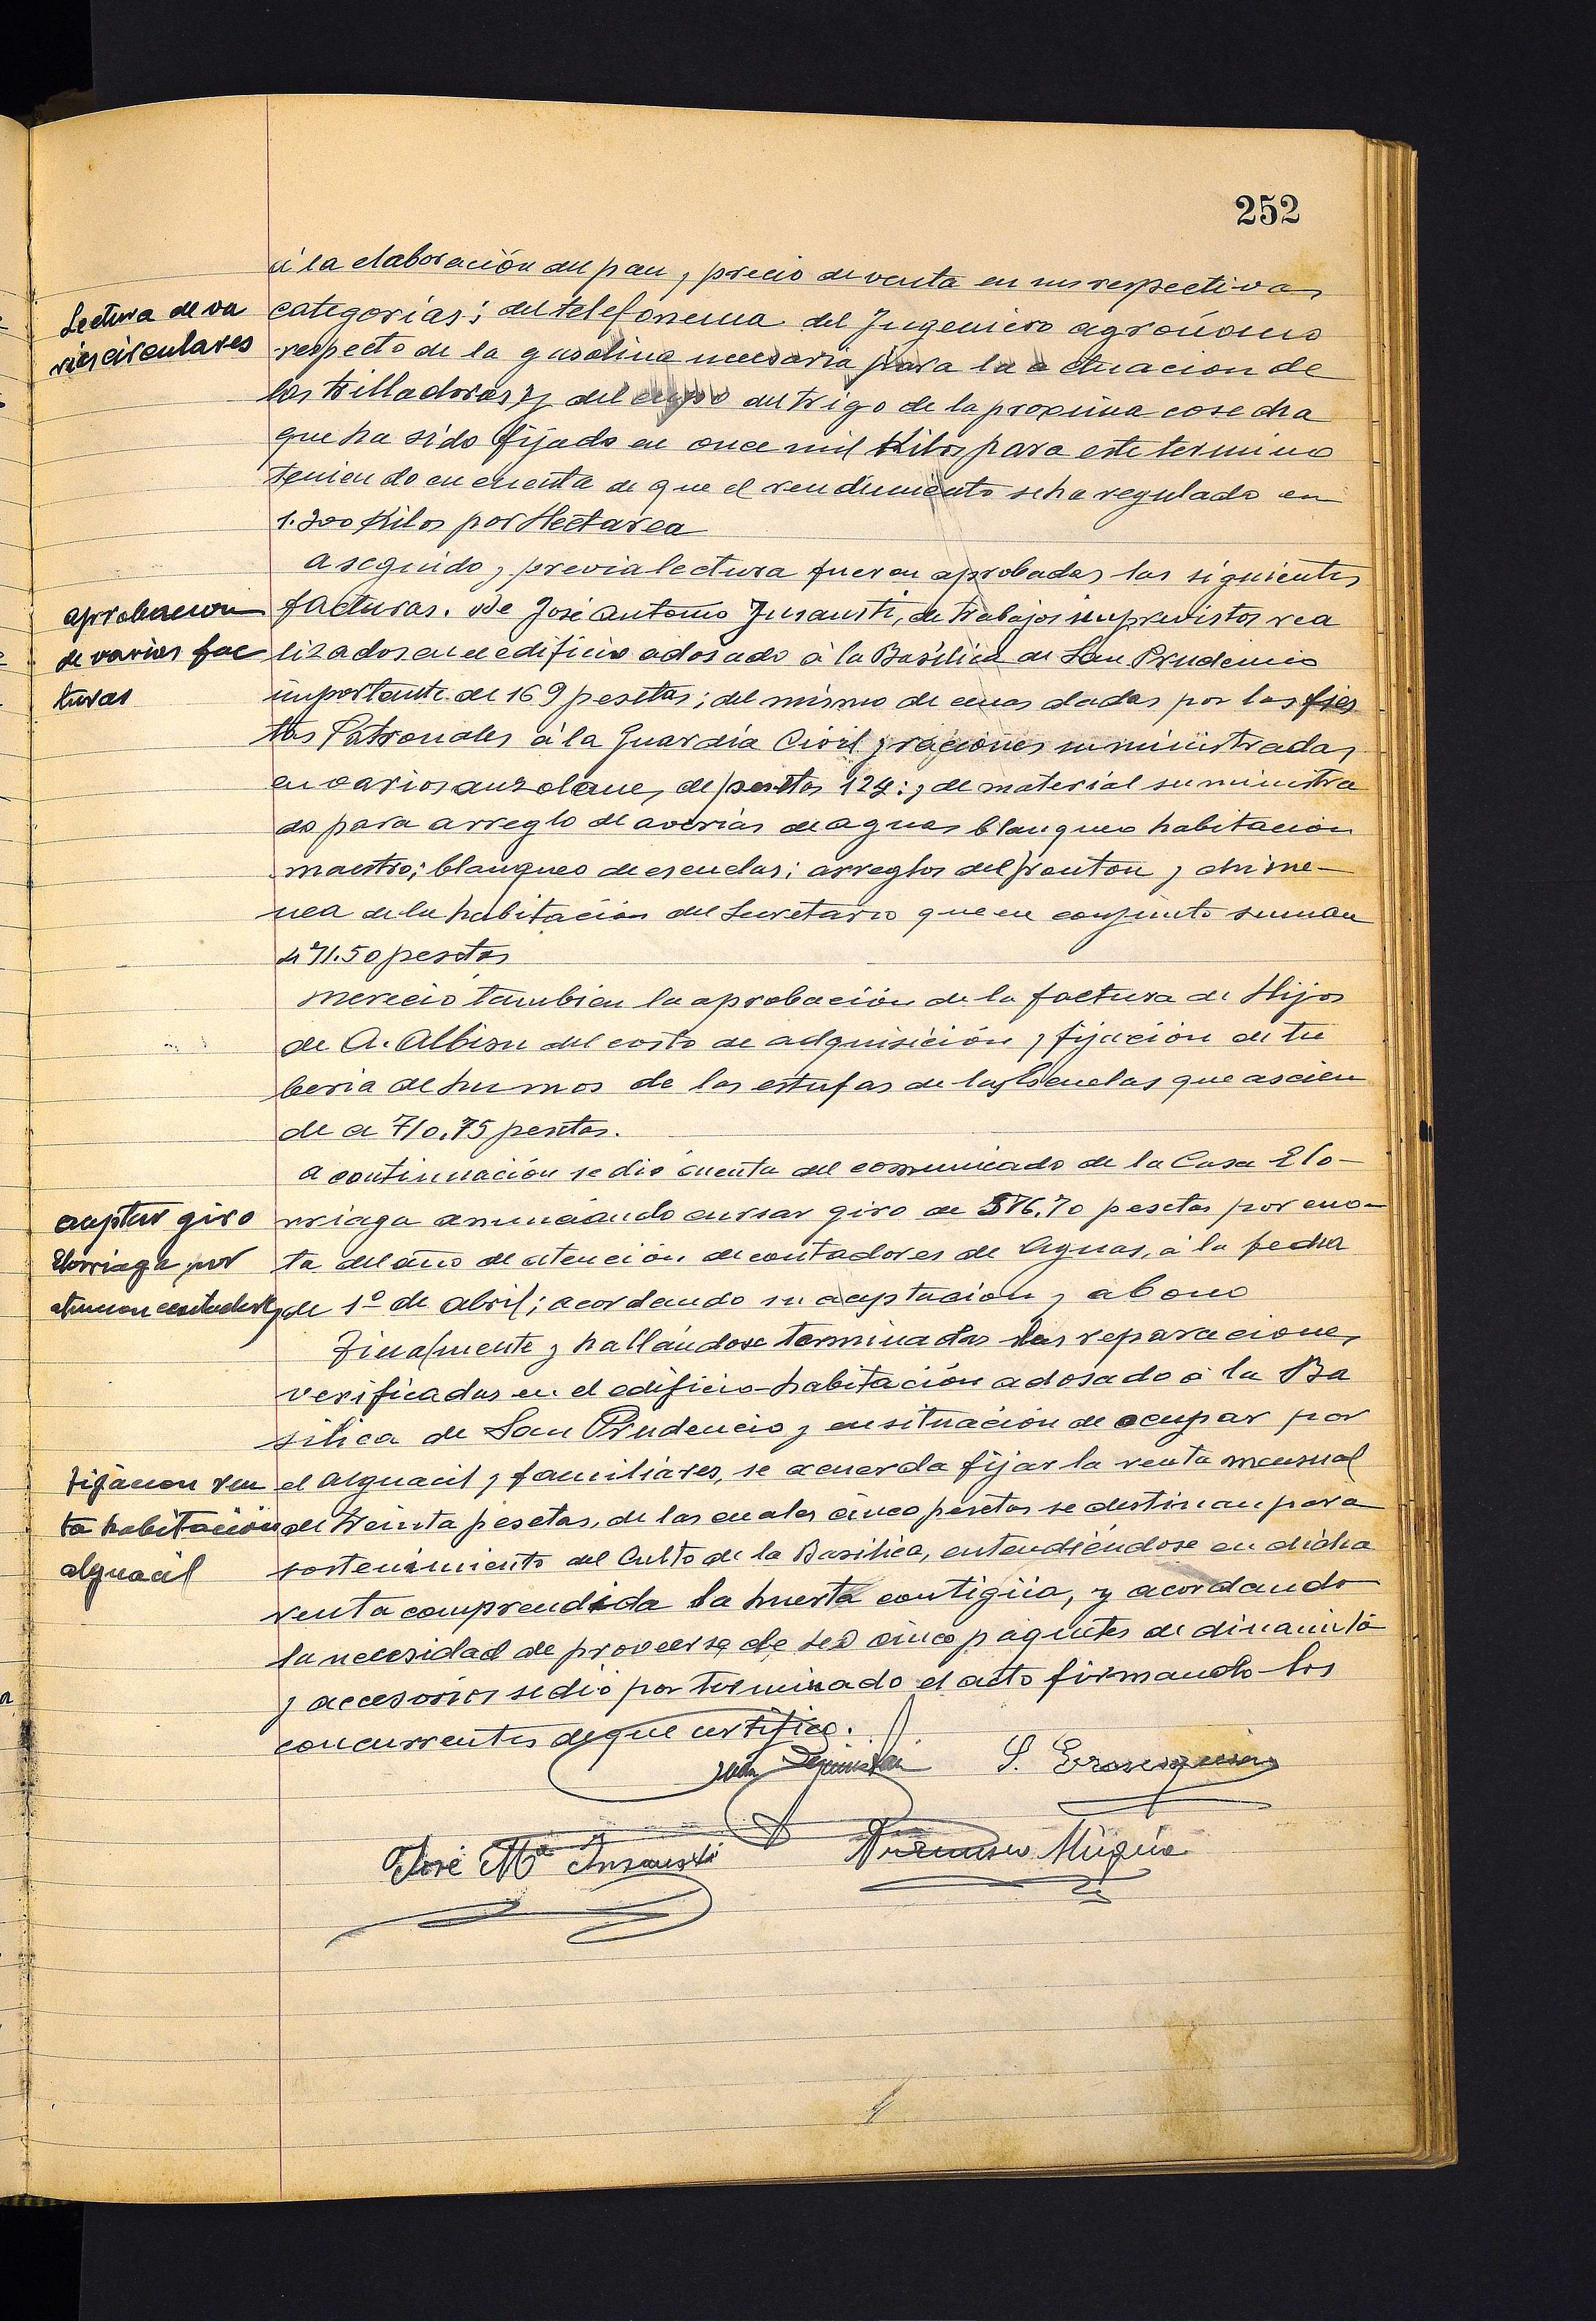 252
á la elaboración del pan y precio de venta en sus respectivas
Lectura de va
categorías; del telefonema del Ingeniero agrónomo
rias circulares
respecto de la gasolina necesaria para la actuacion de
las trilladoras y del cupo del trigo de la proxima cosecha
que ha sido fijado en once mil Kilos para este termino
teniendo en cuenta de que el rendimiento se ha regulado en
1.300 Kilos por Hectarea
A seguido y previa lectura fueron aprobadas las siguientes
aprobacion
facturas. De José Antonio Insausti, de trabajos imprevistos rea
de varias fac
lizados en el edificio adosado á la Basílica de San Prudencio
turas
importante de 169 pesetas; del mismo de cenas dadas por las fies
tas Patronales á la Guardia Civil y raciones suministradas
en varios auzolanes de pesetas 124; y de material suministra
do para arreglo de averias de aguas blanqueo habitacion
maestro; blanqueo de escuelas; arreglos del fronton y chime-
nea de la habitación del Secretario que en conjunto suman
471.50 pesetas
Mereció tambien la aprobación de la factura de Hijos
de A. Albisu del costo de adquisición y fijación de tu
beria de humos de las estufas de las Escuelas que ascien
de a 710.75 pesetas.
A continuación se dió cuenta del comunicado de la Casa Elo-
aceptar giro
rriaga anunciando cursar giro de 376.70 pesetas por cuo-
Elorriaga por
ta del año de atención de contadores de Aguas, á la fecha
atencion contadores
de 1º de abril; acordando su aceptacion y abono
Finalmente y hallándose terminadas las reparaciones
verificadas en el edificio-habitación adosado á la Ba
silica de San Prudencio y en situación de ocupar por
Fijacion ren
el alguacil y familiares, se acuerda fijar la renta mensual
ta habitación
de treinta pesetas, de las cuales cinco pesetas se destinan para
alguacil
sostenimiento del Culto de la Basilica, entendiéndose en dicha
renta comprendida la huerta contigüa, y acordando
la necesidad de proveerse de cinco paquetes de dinamita
y accesorios se dió por terminado el acto firmando los
concurrentes de que certifico.
José Mª Insausti
Múgica